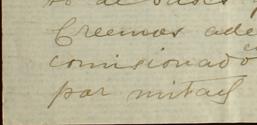 Creemos ade
comisionado
por mitad